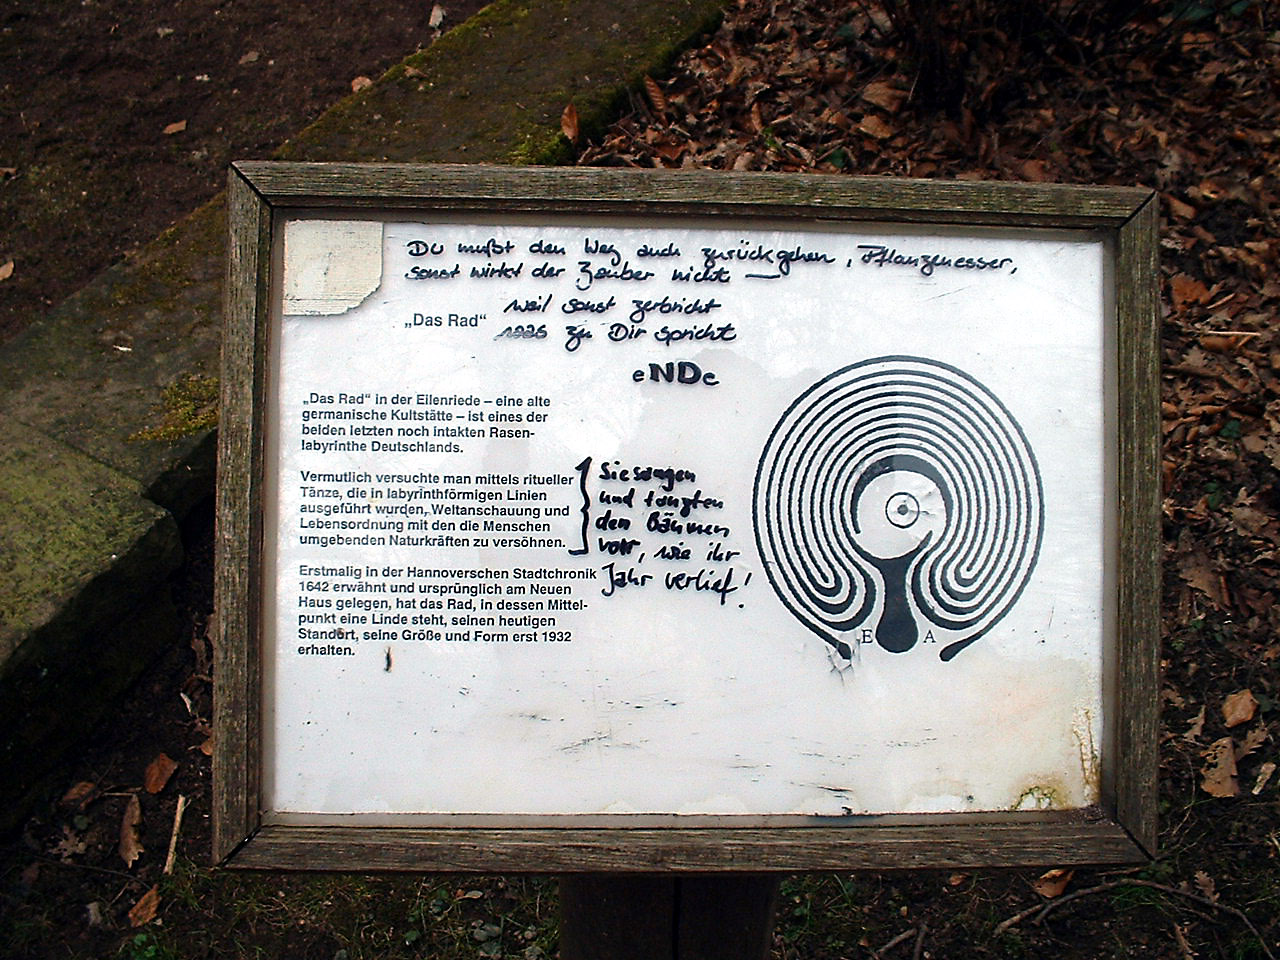 Du mußt den Weg auch zurückgehen, Pflanzenesser,
sonst wirkt der Zauber nicht —
weil sonst zerbricht
„Das Rad“
zu Dir spricht
eNDe
„Das Rad“ in der Eilenriede – eine alte
germanische Kultstätte – ist eines der
beiden letzten noch intakten Rasen-
labyrinthe Deutschlands.
Vermutlich versuchte man mittels ritueller
Tänze, die in labyrinthförmigen Linien
ausgeführt wurden, Weltanschauung und
Lebensordnung mit den die Menschen
umgebenden Naturkräften zu versöhnen.
Sie sangen
und tanzten
den Bäumen
vor, wie ihr
Jahr verlief!
Erstmalig in der Hannoverschen Stadtchronik
1642 erwähnt und ursprünglich am Neuen
Haus gelegen, hat das Rad, in dessen Mittel-
punkt eine Linde steht, seinen heutigen
Standort, seine Größe und Form erst 1932
erhalten.
E A